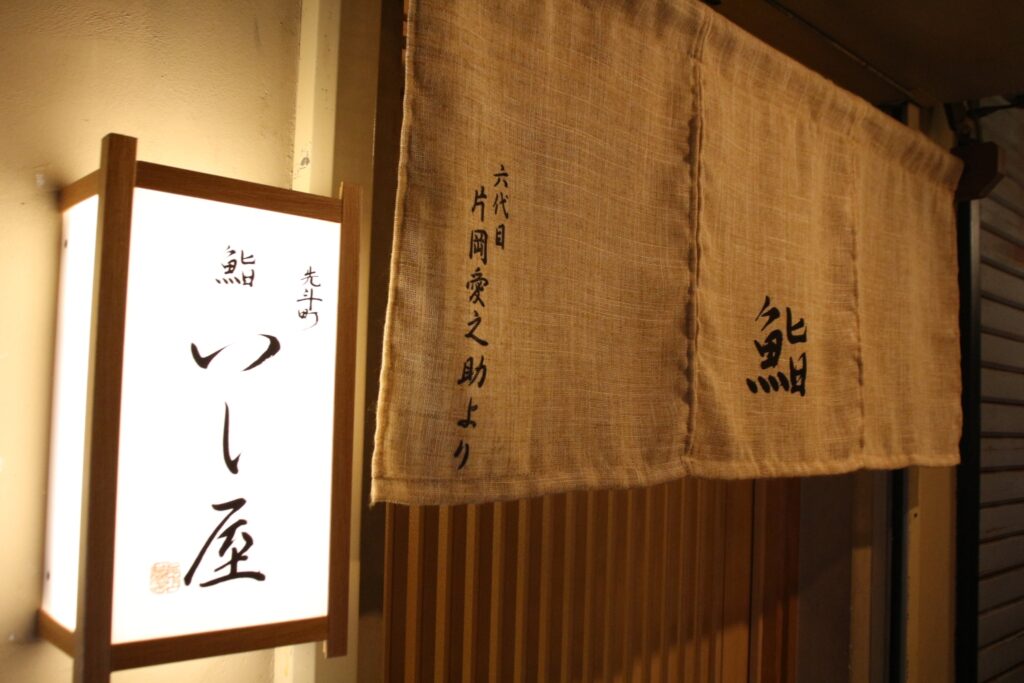 先斗町
鮨
いし屋
六代目
片岡愛之助より
鮨